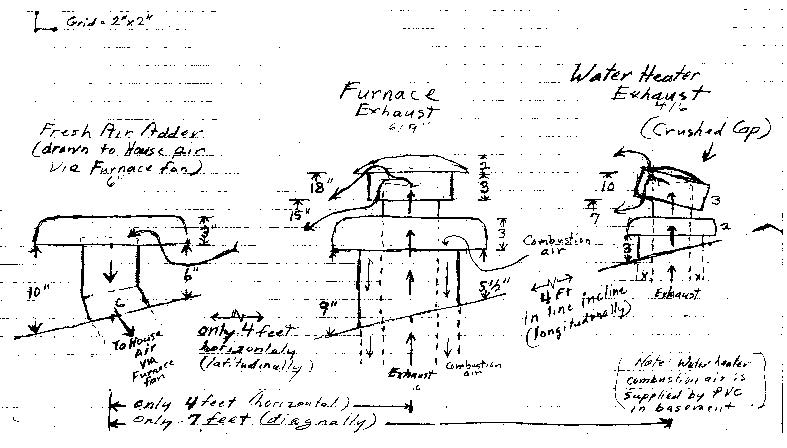 Grid = 2"x2"
Fresh Air Adder
(drawn to House air
via Furnace fan)
6"
3"
10"
6"
To House
Air
via
Furnace
fan
N
only 4 feet
horizontaly
(latitudinally)
Furnace
Exhaust
6/9"
18"
15"
2
3
3
Combustion
air
9"
5½"
Exhaust
Combustion
air
N
4 Ft
in line incline
(longitudonally)
Water Heater
Exhaust
4/6
(Crushed Cap)
10
7
3
2
Exhaust
Note: Water heater
combustion air is
supplied by PVC
in basement
only 4 feet (horizontal)
only 7 feet (diagnally)